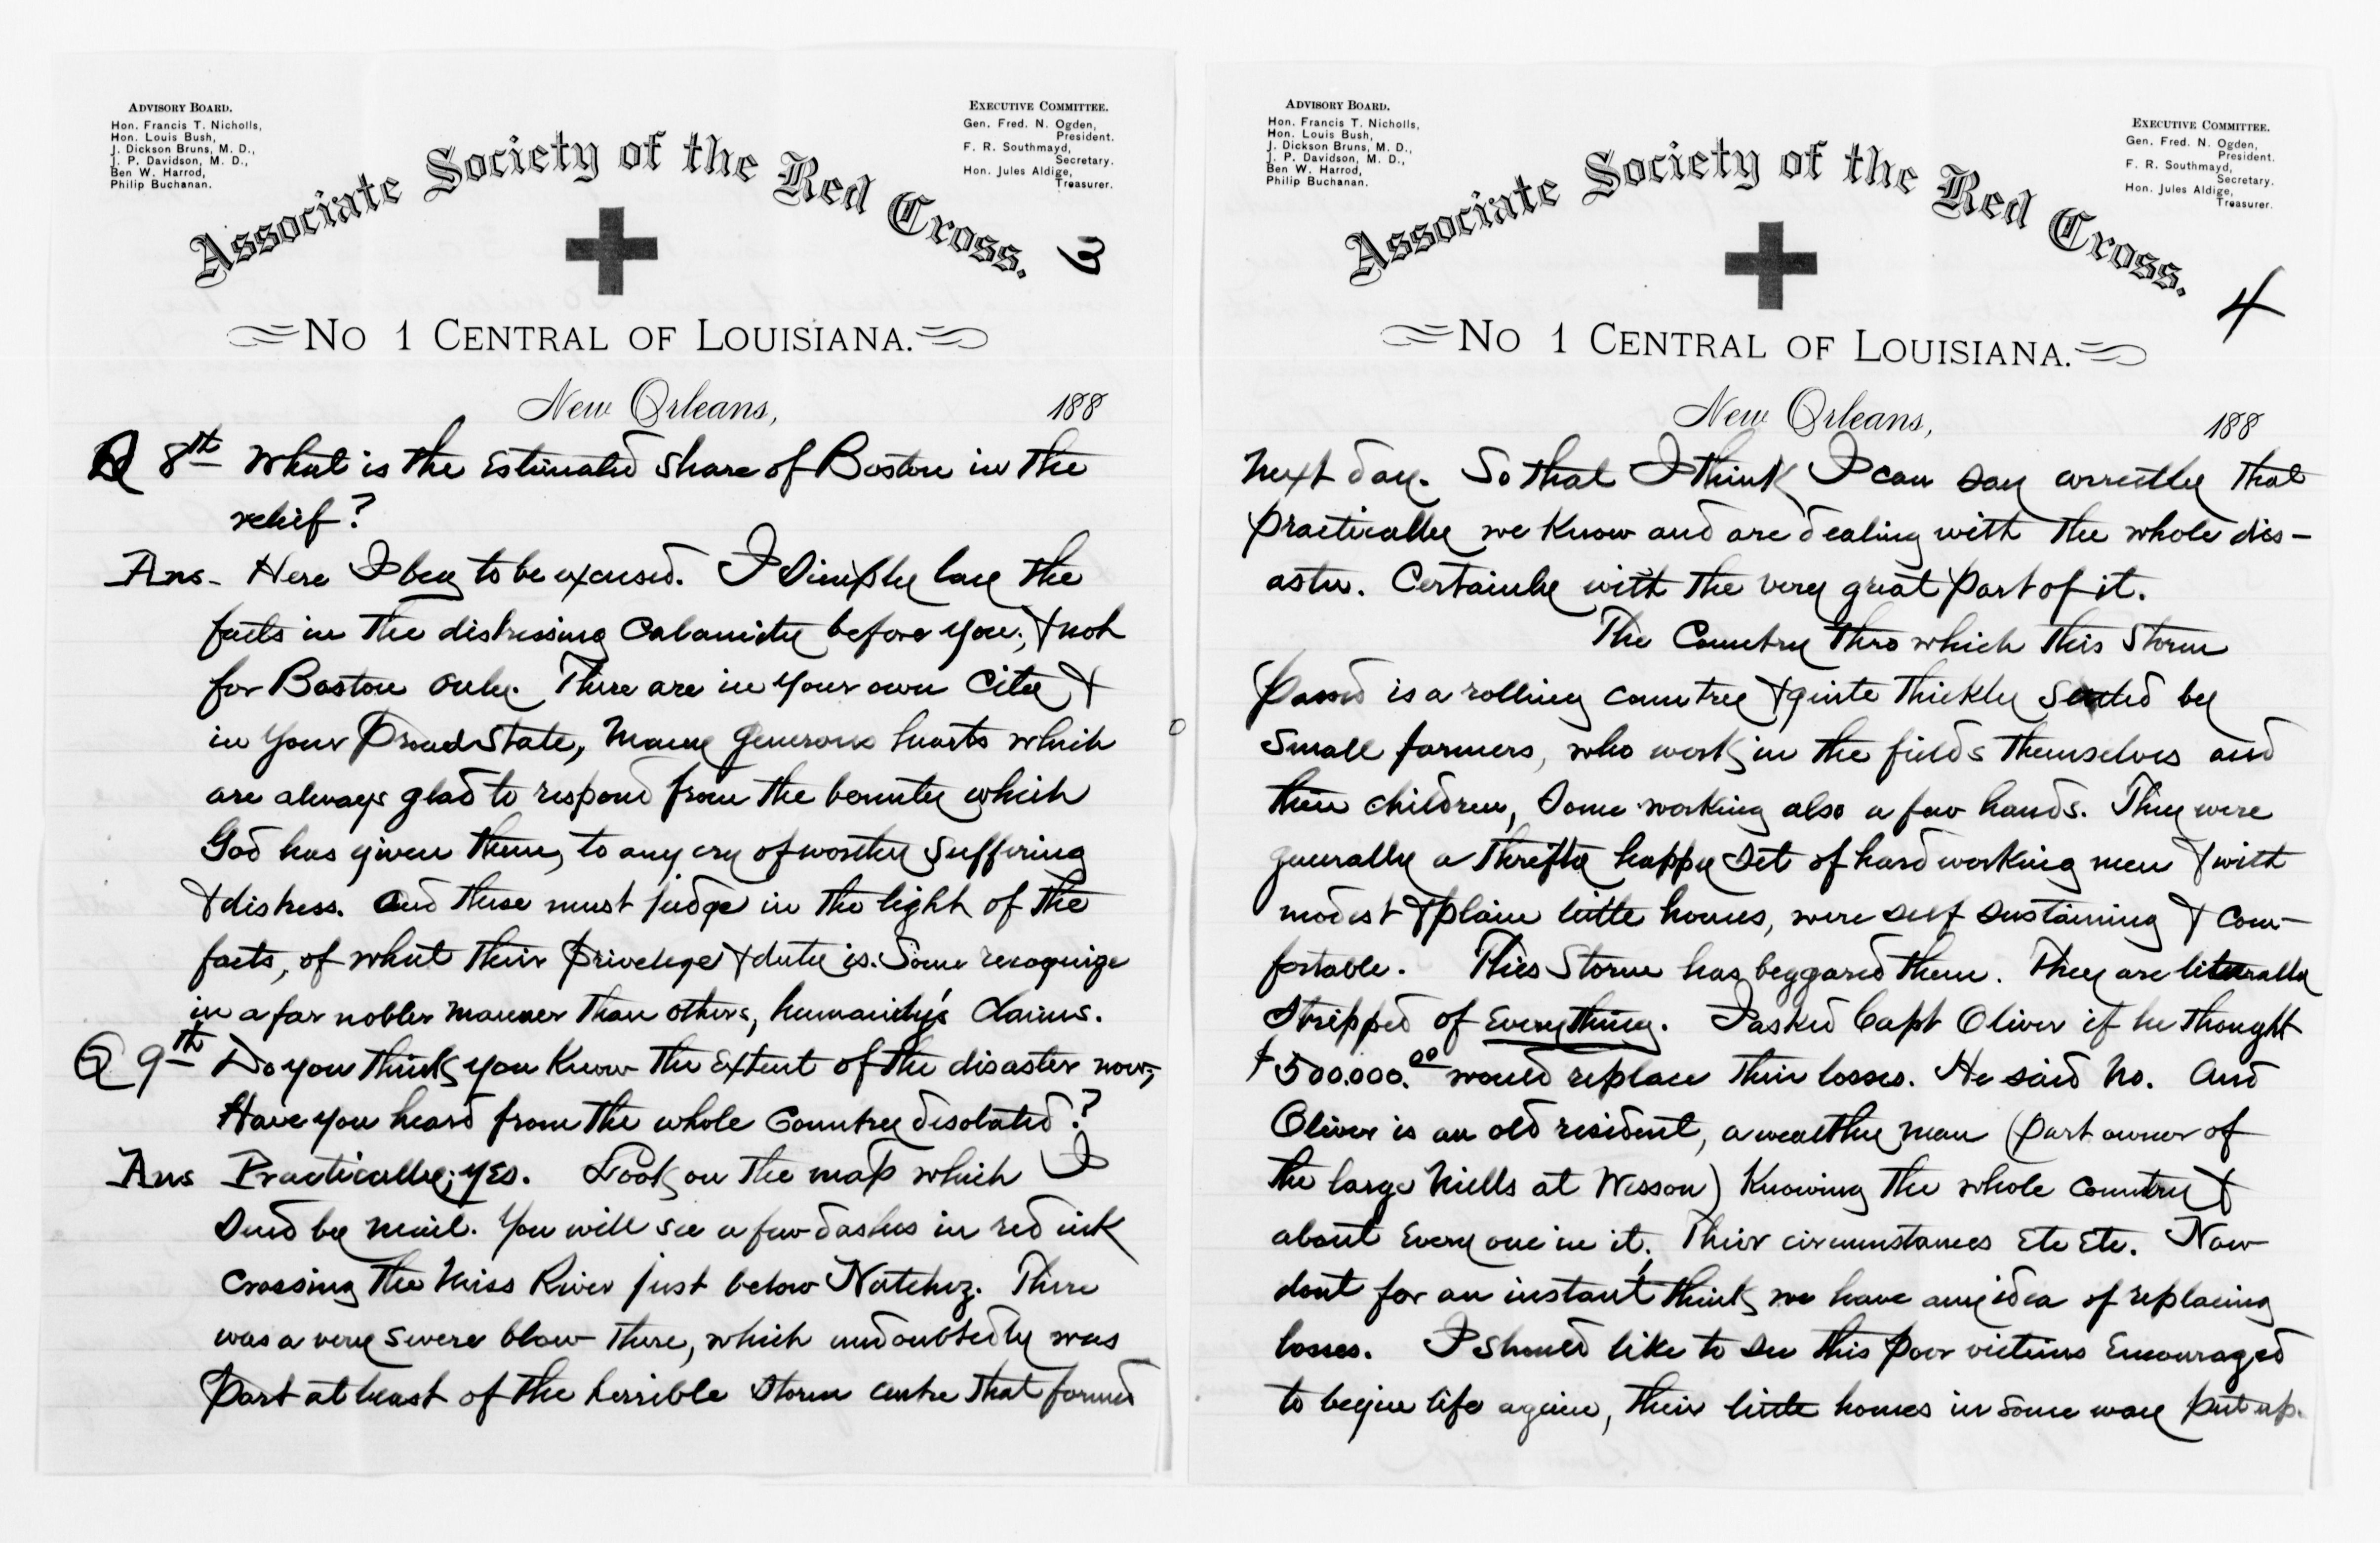 ADVISORY BOARD.
Hon. Francis T. Nicholls,
Hon. Louis Bush,
J. Dickson Bruns, M. D.,
J. P. Davidson, M. D.,
Ben W. Harrod,
Philip Buchanan.
EXECUTIVE COMMITTEE.
Gen. Fred. N. Ogden,
President.
F. R. Southmayd,
Secretary.
Hon. Jules Aldige,
Treasurer.
Associate Society of the Red Cross.
3
No 1 CENTRAL OF LOUISIANA.
New Orleans, 188
Q 8th What is the Estimated Share of Boston in the
relief?
Ans- Here I beg to be excused. I Simply lay the
facts in the distressing Calamity before you; & not
for Boston only. There are in your own City &
in your Proud State, Many Generous hearts which
are always glad to respond from the bounty which
God has given them, to any cry of worthy Suffering
& distress. And these must judge in the light of the
facts, of what their privelege & duty is. Some recognize
in a far nobler manner than others, humanity's Claims.
Q 9th Do you think you know the Extent of the disaster now;
Have you heard from the whole Country desolated?
Ans Practically; yes. Look on the map which I
Send by mail. You will see a few dashes in red ink
Crossing the Miss River just below Natchez. There
was a very Severe blow there, which undoubtedly was
Part at least of the horrible Storm Centre that formed
ADVISORY BOARD.
Hon. Francis T. Nicholls,
Hon. Louis Bush,
J. Dickson Bruns, M. D.,
J. P. Davidson, M. D.,
Ben W. Harrod,
Philip Buchanan.
EXECUTIVE COMMITTEE.
Gen. Fred. N. Ogden,
President.
F. R. Southmayd,
Secretary.
Hon. Jules Aldige,
Treasurer.
Associate Society of the Red Cross.
4
No 1 CENTRAL OF LOUISIANA.
New Orleans, 188
Next day. So that I think I can Say correctly that
practically we Know and are dealing with the whole dis-
aster. Certainly with the very great Part of it.
The Country thro which this Storm
Passed is a rolling country & quite thickly Settled by
Small farmers, who work in the fields themselves and
their children, Some working also a few hands. They were
generally a thrifty happy Set of hard working men & with
modest & plain little homes, were Self Sustaining & Com-
fortable. This Storm has beggared them. They are literally
Stripped of Everything. I asked Capt Oliver if he thought
$500.000.00 would replace their losses. He said No. And
Oliver is an old resident, a wealthy man (Part owner of
the large Mills at Wesson) Knowing the whole Country &
about Every one in it; Their circumstances Etc Etc. Now
dont for an instant think we have any idea of replacing
losses. I Should like to See this poor victims Encouraged
to begin life again, their little homes in Some way Put up.